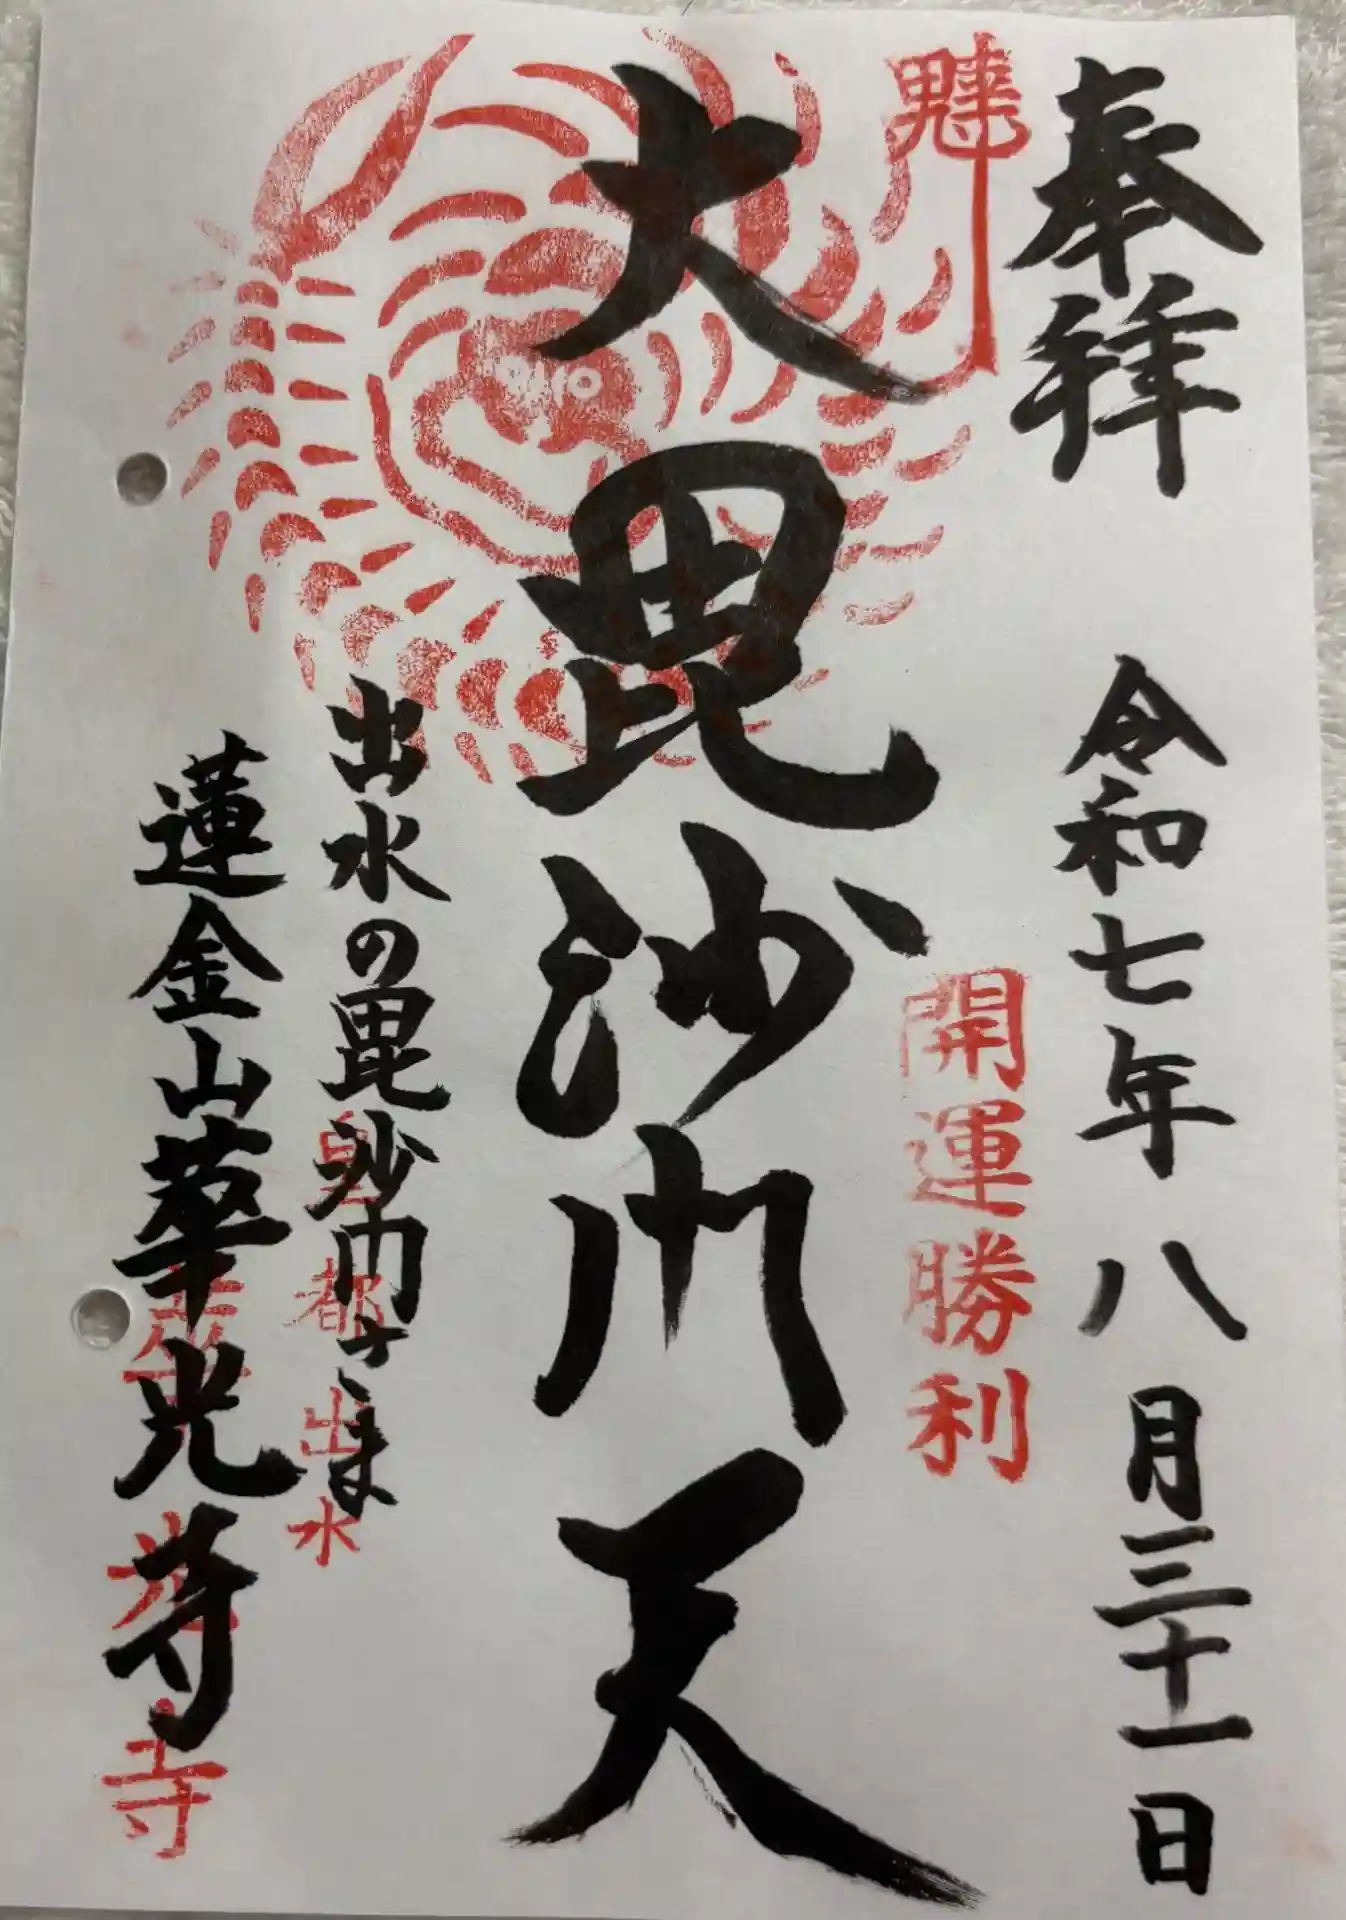 奉拝
令和七年八月三十一日
開運勝利
大毘沙門天
出水の毘沙門さま
皇都出水
蓮金山華光寺
華光寺